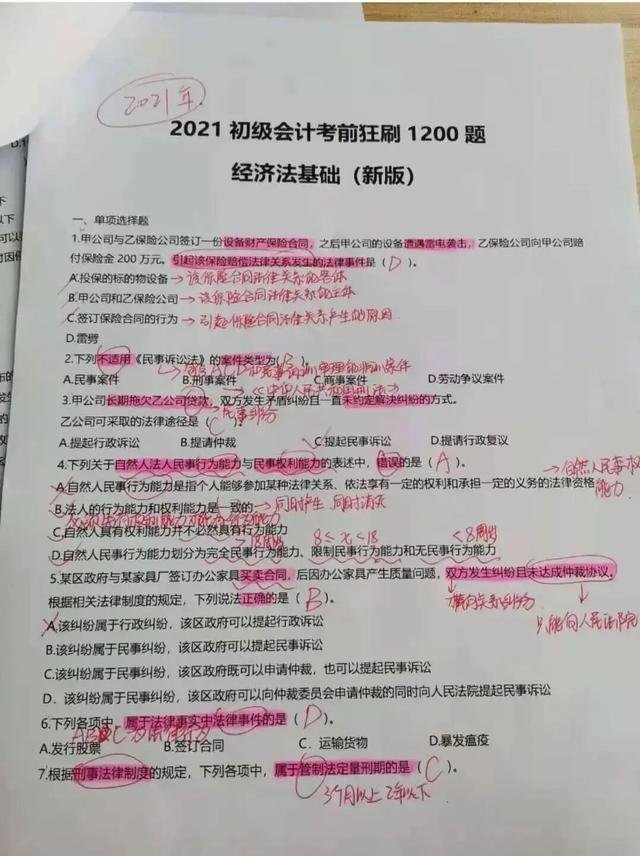 2021年
2021 初级会计考前狂刷 1200 题
经济法基础（新版）
一、单项选择题
1.甲公司与乙保险公司签订一份设备财产保险合同，之后甲公司的设备遭遇雷电袭击，乙保险公司向甲公司赔
付保险金 200 万元。引起该保险赔偿法律关系发生的法律事件是（ D ）。
A.投保的标的物设备→该保险合同法律关系的客体
B.甲公司和乙保险公司→该保险合同法律关系的主体
C.签订保险合同的行为→引起保险合同法律关系产生的原因
D.雷劈
2.下列不适用《民事诉讼法》的案件类型为( B )。
A.民事案件 B.刑事案件 C.商事案件 D.劳动争议案件
3.甲公司长期拖欠乙公司贷款，双方发生矛盾纠纷且一直未约定解决纠纷的方式。
民事纠纷
乙公司可采取的法律途径是（ C ）。
A.提起行政诉讼 B.提请仲裁 C.提起民事诉讼 D.提请行政复议
4.下列关于自然人法人民事行为能力与民事权利能力的表述中，错误的是（ A ）。
→自然人民事权利能力
A.自然人民事行为能力是指个人能够参加某种法律关系、依法享有一定的权利和承担一定的义务的法律资格
B.法人的行为能力和权利能力是一致的→同时产生 同时消灭
C.自然人具有权利能力并不必然具有行为能力
≥18周岁 8≤x<18 <8周岁
D.自然人民事行为能力划分为完全民事行为能力、限制民事行为能力和无民事行为能力
5.某区政府与某家具厂签订办公家具买卖合同，后因办公家具产生质量问题，双方发生纠纷且未达成仲裁协议。
根据相关法律制度的规定，下列说法正确的是（ B ）。
横向关系纠纷
只能向人民法院
A.该纠纷属于行政纠纷，该区政府可以提起行政诉讼
B.该纠纷属于民事纠纷，该区政府可以提起民事诉讼
C.该纠纷属于民事纠纷，该区政府既可以申请仲裁，也可以提起民事诉讼
D．该纠纷属于民事纠纷，该区政府可以向仲裁委员会申请仲裁的同时向人民法院提起民事诉讼
6.下列各项中，属于法律事实中法律事件的是（ D ）。
A.发行股票 B.签订合同 C．运输货物 D.暴发瘟疫
7.根据刑事法律制度的规定，下列各项中，属于管制法定量刑期的是（ C ）。
3个月以上 2年以下